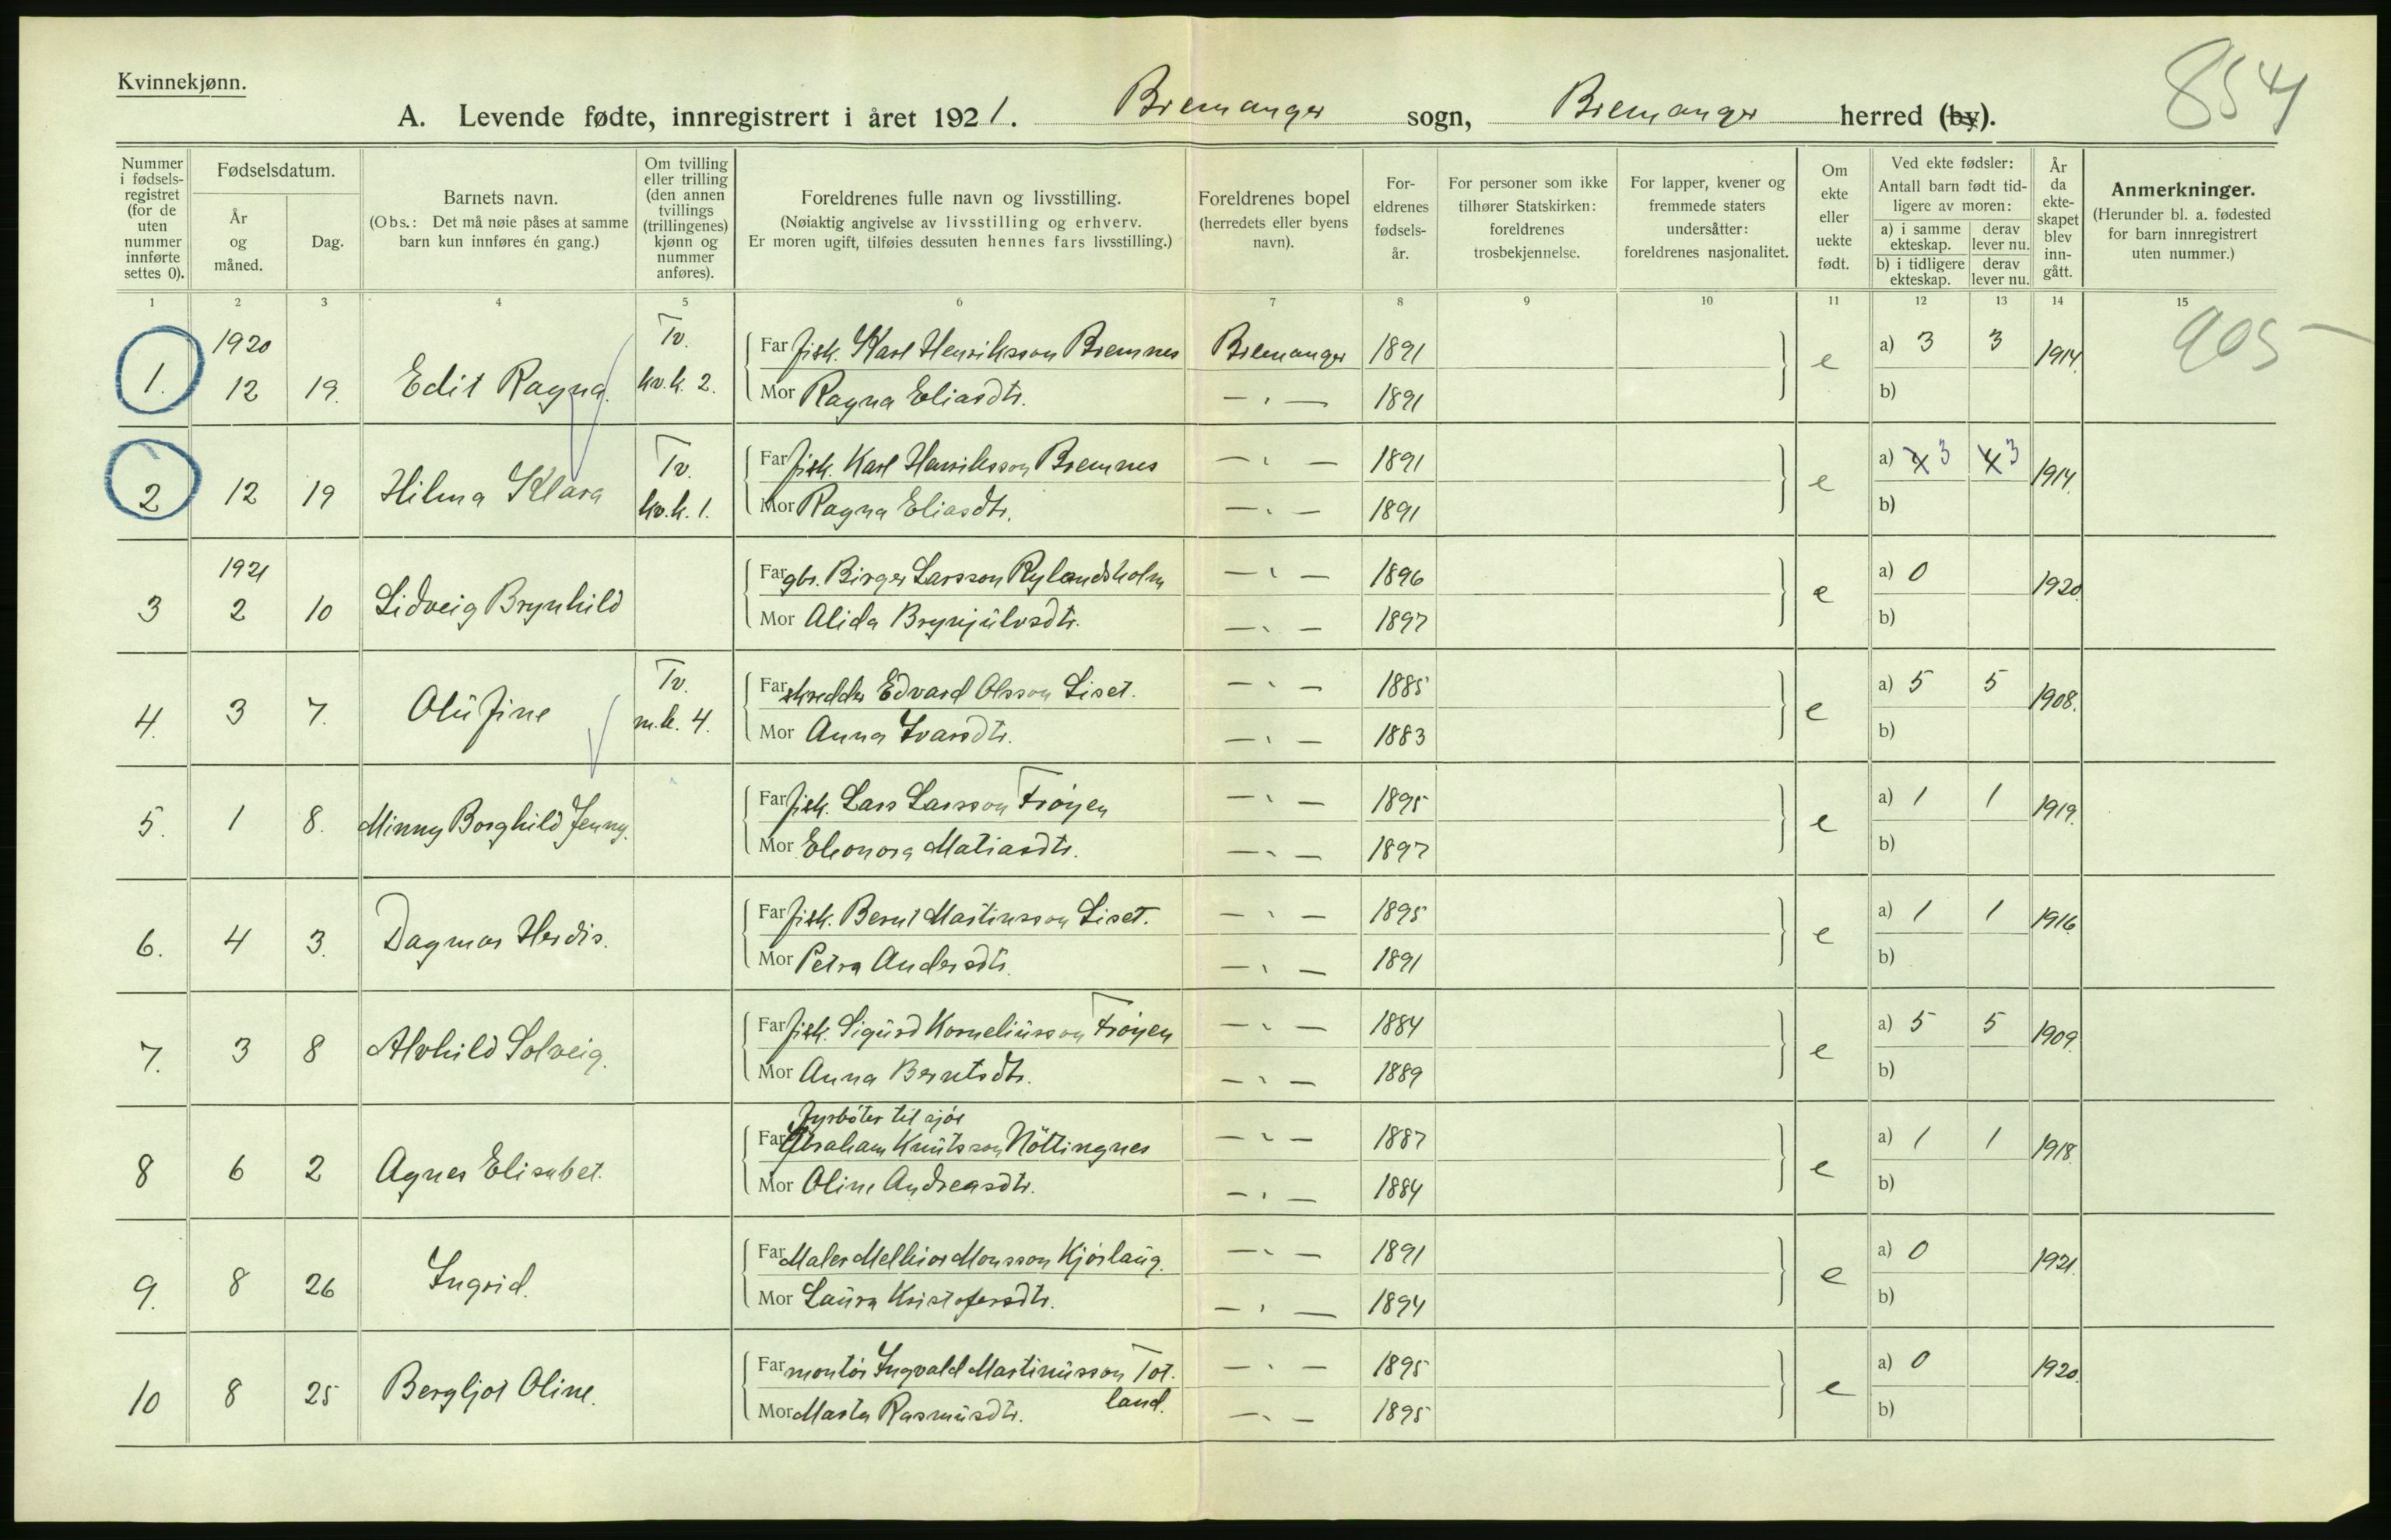 Kvinnekjønn.
8541
A. Levende fødte, innregistrert i året 1921. Bremanger sogn, Bremanger herred (by).
Nummer i fødsels-registret (for de uten nummer innførte settes 0).
Fødselsdatum.
År og måned.
Dag.
Barnets navn.
(Obs.: Det må nøie påses at samme barn kun innføres én gang.)
Om tvilling eller trilling (den annen tvillings (trillingenes) kjønn og nummer anføres).
Foreldrenes fulle navn og livsstilling.
(Nøiaktig angivelse av livsstilling og erhverv.
Er moren ugift, tilføies dessuten hennes fars livsstilling.)
Foreldrenes bopel (herredets eller byens navn).
For-eldrenes fødsels-år.
For personer som ikke tilhører Statskirken: foreldrenes trosbekjennelse.
For lapper, kvener og fremmede staters undersåtter: foreldrenes nasjonalitet.
Om ekte eller uekte født.
Ved ekte fødsler:
Antall barn født tid-ligere av moren:
a) i samme ekteskap. derav lever nu.
b) i tidligere ekteskap. derav lever nu.
År da ekte-skapet blev inn-gått.
Anmerkninger.
(Herunder bl. a. fødested for barn innregistrert uten nummer.)
1 2 3 4 5 6 7 8 9 10 11 12 13 14 15
905
1. 1920 12 19. Edit Ragna. Tv. kv.k. 2. Far fisk. Karl Henriksson Bremnes Bremanger 1891 e a) 3 3 1914.
Mor Ragna Eliasdtr. — " — 1891 b)
2 12 19 Hilma Klara Tv. kv.k. 1. Far fisk. Karl Henriksson Bremnes — " — 1891 e a) 4 3 4 3 1914.
Mor Ragna Eliasdtr. — " — 1891 b)
3 1921 2 10 Lidveig Brynhild Far gbr. Birger Larsson Rylandsholm — " — 1896 e a) 0 1920
Mor Alida Brynjulvsdtr. — " — 1897 b)
4. 3 7. Olufine Tv. m.k. 4. Far skredder Edvard Olsson Liset. — " — 1885 e a) 5 5 1908.
Mor Anna Ivarsdtr. — " — 1883 b)
5. 1 8. Minny Borghild Jenny. Far fisk. Lars Larsson Frøyen — " — 1895 e a) 1 1 1919.
Mor Eleonora Matiasdtr. — " — 1897 b)
6. 4 3. Dagmar Herdis. Far fisk. Bernt Martinsson Liset. — " — 1895 e a) 1 1 1916
Mor Petra Andersdtr. — " — 1891 b)
7. 3 8 Alvhild Solveig. Far fisk. Sigurd Korneliusson Frøyen — " — 1884 e a) 5 5 1909.
Mor Anna Berntsdtr. — " — 1889 b)
8 6 2 Agnes Elisabet. Fyrbøter til sjøs
Far Abraham Knutsson Nøttingnes — " — 1887 e a) 1 1 1918.
Mor Oline Andreasdtr. — " — 1884 b)
9. 8 26 Ingrid. Far Maler Melkior Monsson Kjørlaug. — " — 1891 e a) 0 1921.
Mor Laura Kristofersdtr. — " — 1894 b)
10 8 25 Bergljot Oline. Far montør Ingvald Martinusson Tot- — " — 1895 e a) 0 1920.
land.
Mor Marta Rasmusdtr. — " — 1895 b)